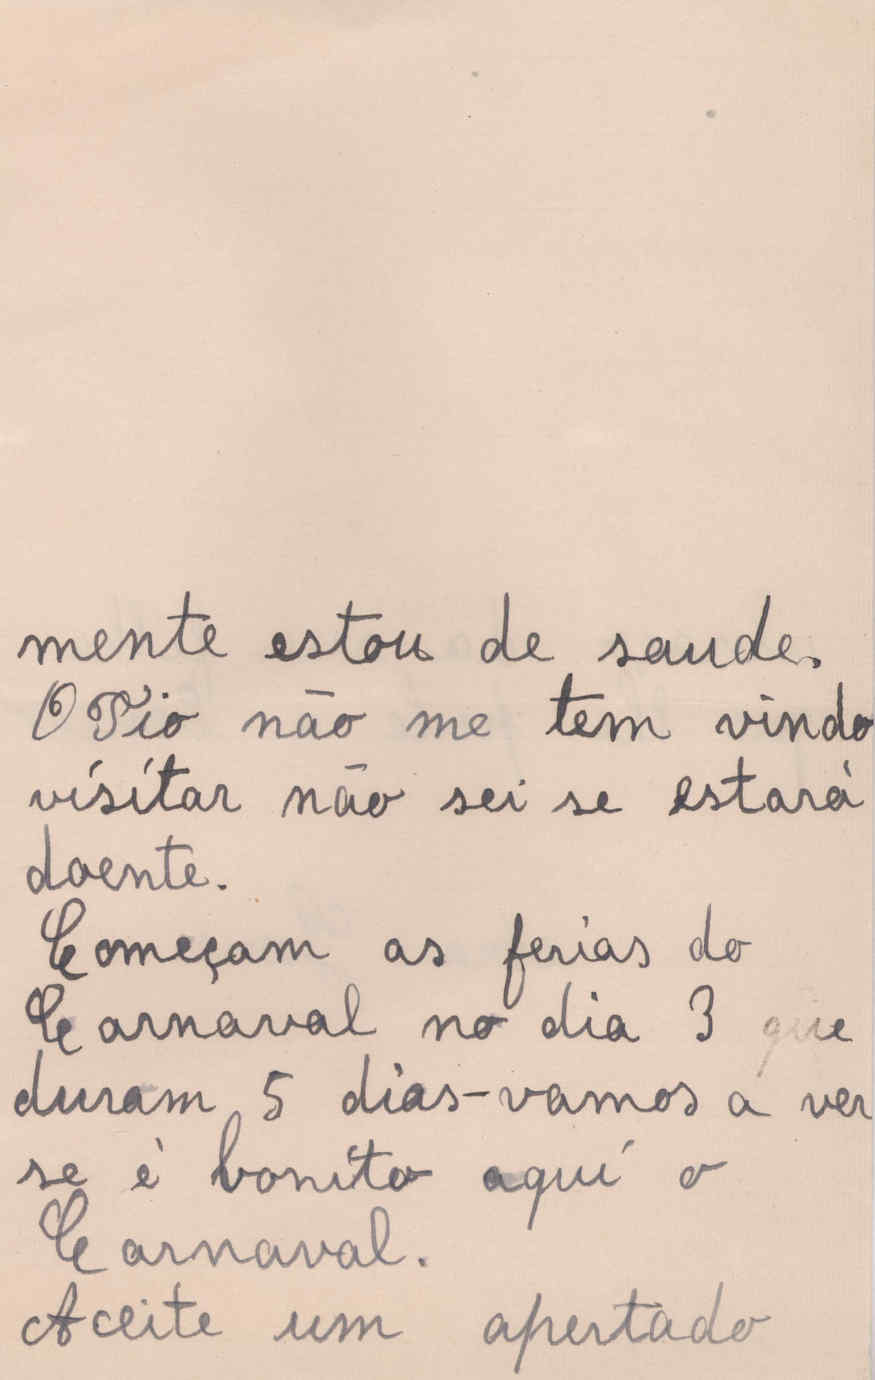 mente estou de saude.
O Tio não me tem vindo
visitar não sei se estará
doente.
Começam as ferias do
Carnaval no dia 3 que
duram 5 dias-vamos a ver
se è bonito aquí o
Carnaval.
Aceite um apertado